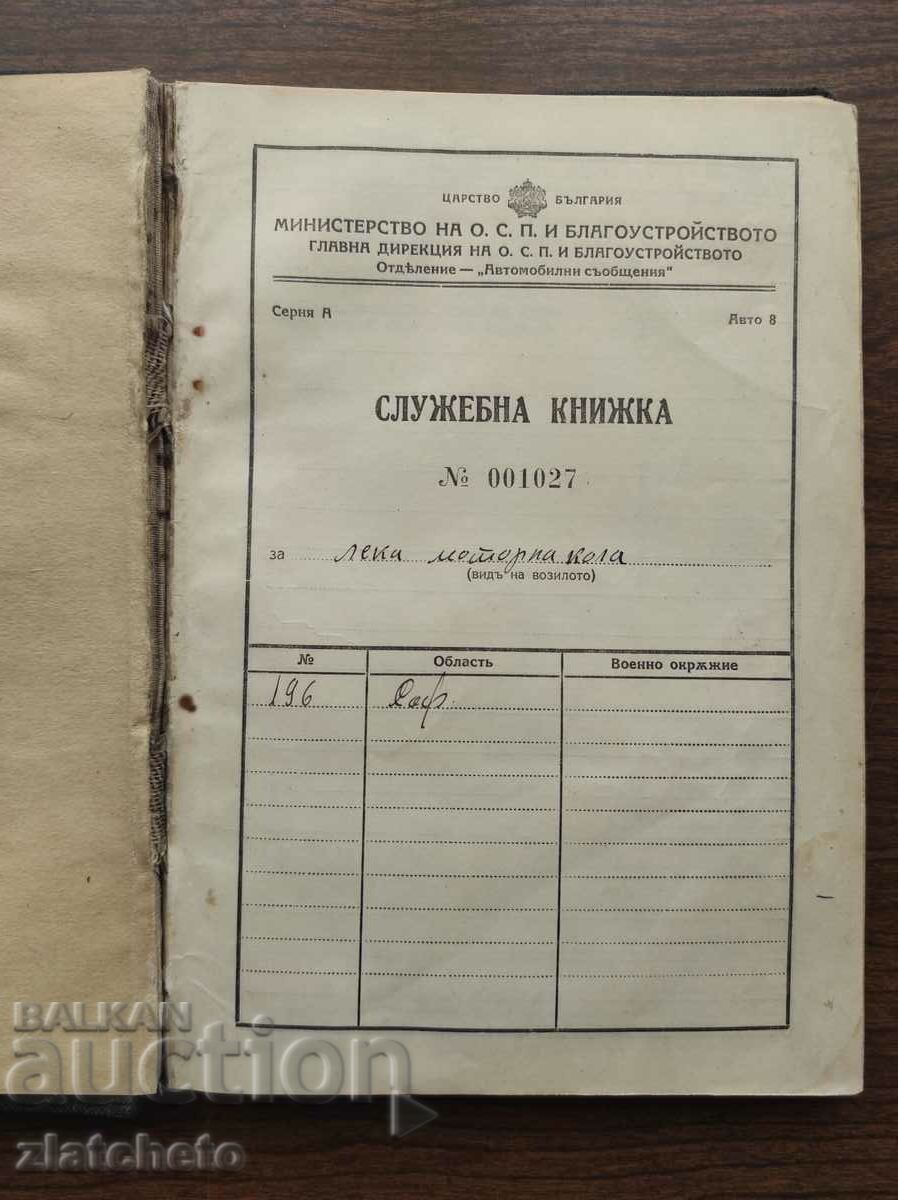 ЦАРСТВО БЪЛГАРИЯ
МИНИСТЕРСТВО НА О. С. П. И БЛАГОУСТРОЙСТВОТО
ГЛАВНА ДИРЕКЦИЯ НА О. С. П. И БЛАГОУСТРОЙСТВОТО
Отдѣление — „Автомобилни съобщения"
Серия А Авто 8
СЛУЖЕБНА КНИЖКА
№ 001027
за лека моторна кола
(видъ на возилото)
№ Область Военно окрѫжие
196 Соф.
BALKAN
auction
zlatcheto